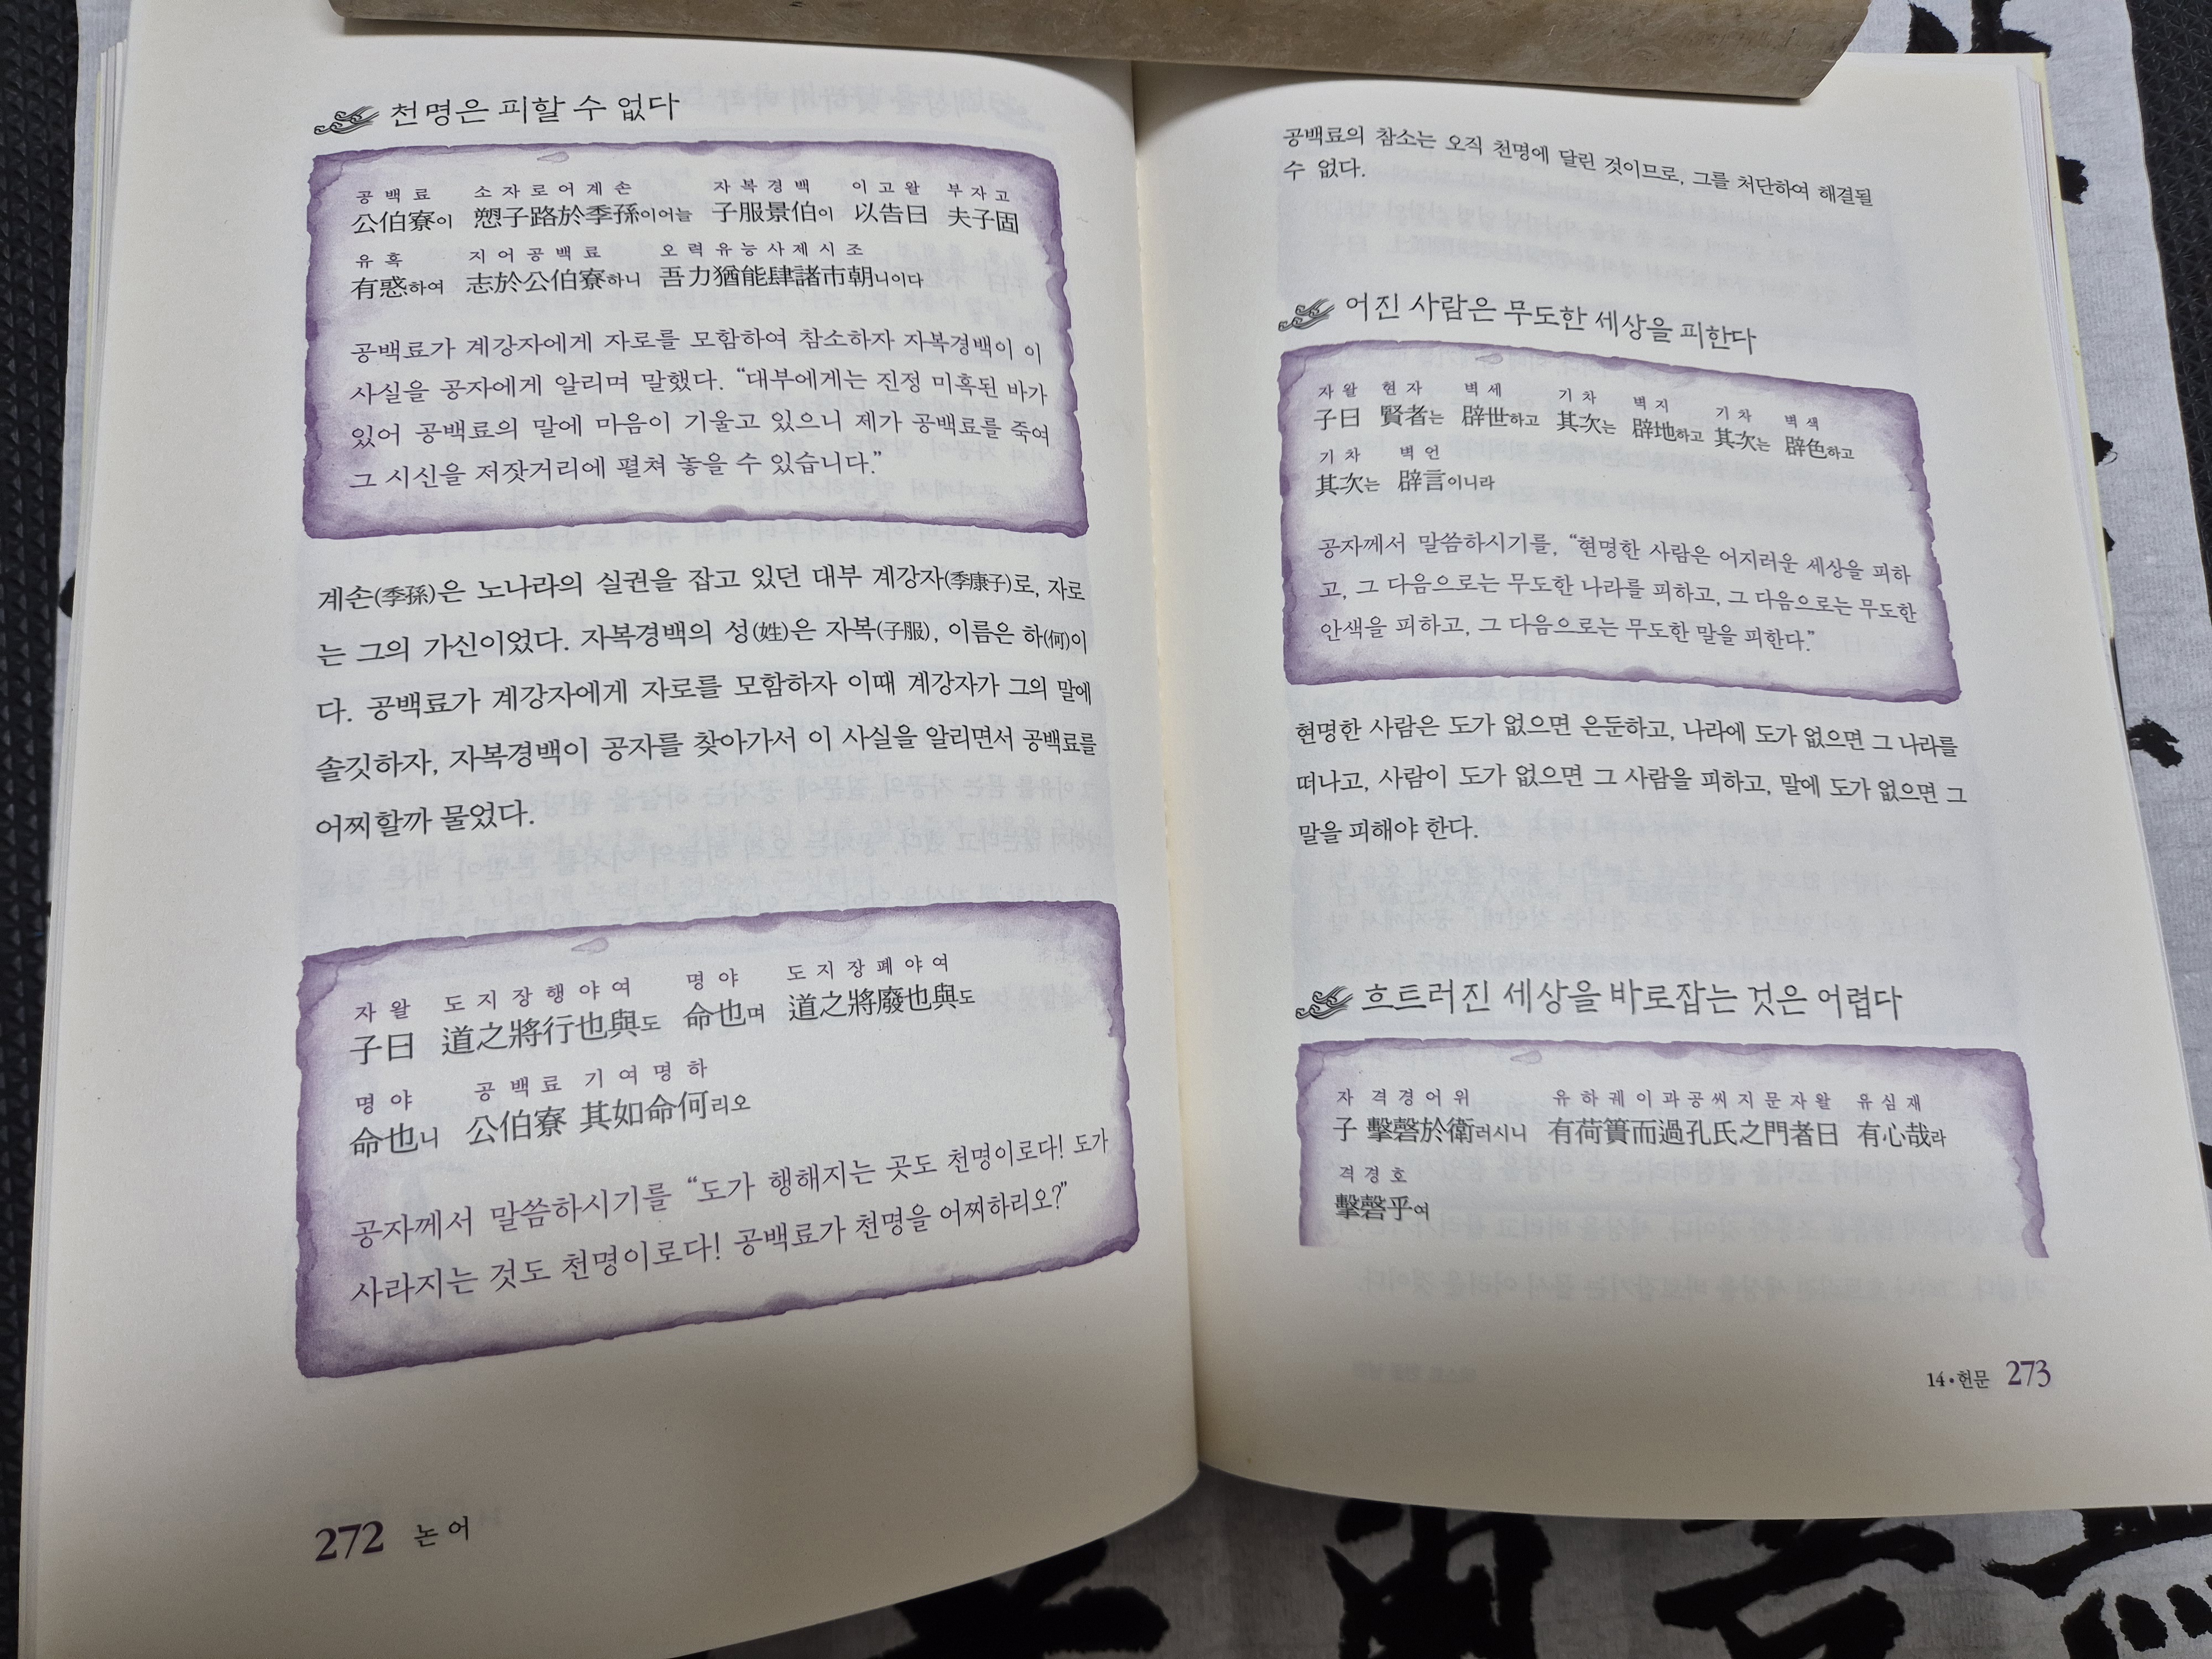 천명은 피할 수 없다
공백료 소자로어계손 자복경백 이고왈 부자고
公伯寮이 愬子路於季孫이어늘 子服景伯이 以告曰 夫子固
유혹 지어공백료 오력유능사제시조
有惑하여 志於公伯寮하니 吾力猶能肆諸市朝니이다
공백료가 계강자에게 자로를 모함하여 참소하자 자복경백이 이
사실을 공자에게 알리며 말했다. “대부에게는 진정 미혹된 바가
있어 공백료의 말에 마음이 기울고 있으니 제가 공백료를 죽여
그 시신을 저잣거리에 펼쳐 놓을 수 있습니다.”
계손(季孫)은 노나라의 실권을 잡고 있던 대부 계강자(季康子)로, 자로
는 그의 가신이었다. 자복경백의 성(姓)은 자복(子服), 이름은 하(何)이
다. 공백료가 계강자에게 자로를 모함하자 이때 계강자가 그의 말에
솔깃하자, 자복경백이 공자를 찾아가서 이 사실을 알리면서 공백료를
어찌할까 물었다.
자왈 도지장행야여 명야 도지장폐야여
子曰 道之將行也與도 命也며 道之將廢也與도
명야 공백료 기여명하
命也니 公伯寮 其如命何리오
공자께서 말씀하시기를 “도가 행해지는 곳도 천명이로다! 도가
사라지는 것도 천명이로다! 공백료가 천명을 어찌하리오?”
272 논어
공백료의 참소는 오직 천명에 달린 것이므로, 그를 처단하여 해결될
수 없다.
어진 사람은 무도한 세상을 피한다
자왈 현자 벽세 기차 벽지 기차 벽색
子曰 賢者는 辟世하고 其次는 辟地하고 其次는 辟色하고
기차 벽언
其次는 辟言이니라
공자께서 말씀하시기를, “현명한 사람은 어지러운 세상을 피하
고, 그 다음으로는 무도한 나라를 피하고, 그 다음으로는 무도한
안색을 피하고, 그 다음으로는 무도한 말을 피한다.”
현명한 사람은 도가 없으면 은둔하고, 나라에 도가 없으면 그 나라를
떠나고, 사람이 도가 없으면 그 사람을 피하고, 말에 도가 없으면 그
말을 피해야 한다.
흐트러진 세상을 바로잡는 것은 어렵다
자 격경어위 유하궤이과공씨지문자왈 유심재
子 擊磬於衛러시니 有荷簣而過孔氏之門者曰 有心哉라
격경호
擊磬乎여
14•헌문 273